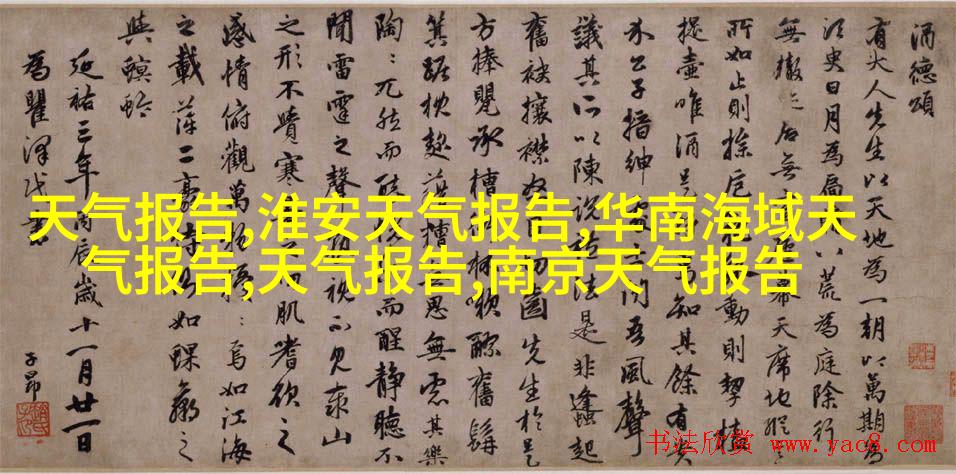 酒德頌
有大人先生以天地為一朝以萬期為
須臾日月為扃八荒為庭除行
無轍迹居無室廬幕天席地縱意
所如止則操卮執動則挈榼
提壺唯酒是知其餘有貴
介公子搢紳處士聞吾風聲
議其所以陳說禮法是非鋒起
奮袂攘襟怒目切齒先生於是
方捧甖承槽銜杯漱醪奮髯
箕踞枕麴藉糟無思無慮其樂
陶々兀然而醉而醒靜聽不
聞雷霆之聲熟視不見泰山
之形不覺寒暑之切肌嗜欲之
感情俯觀萬物擾々焉如江海
之載萍二豪侍側如蜾蠃之
與螟蛉
延祐三年丙辰歲十一月廿一日
為瞿澤民書
子昂
天气报告,淮安天气报告,华南海域天
气报告,天气报告,南京天气报告
书法欣赏 www.yac8.com